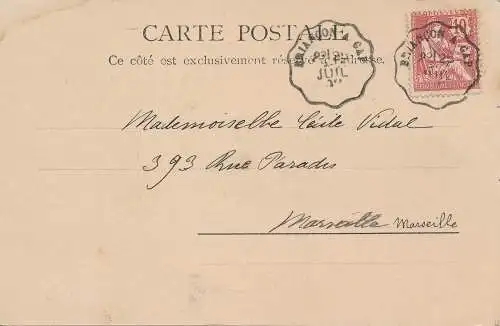 CARTE POSTALE
Ce côté est exclusivement réservé à l'adresse.
BRIANÇON A GAP
JUIL
10
BRIANÇON A GAP
Mademoiselle Cécile Vidal
393 Rue Paradis
Marseille Marseille